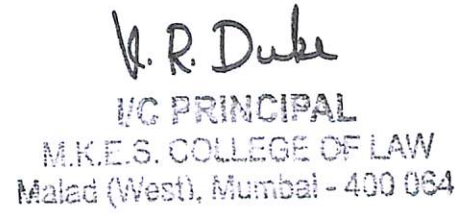 V. R. Duke
I/C PRINCIPAL
M.K.E.S. COLLEGE OF LAW
Malad (West), Mumbai - 400 064